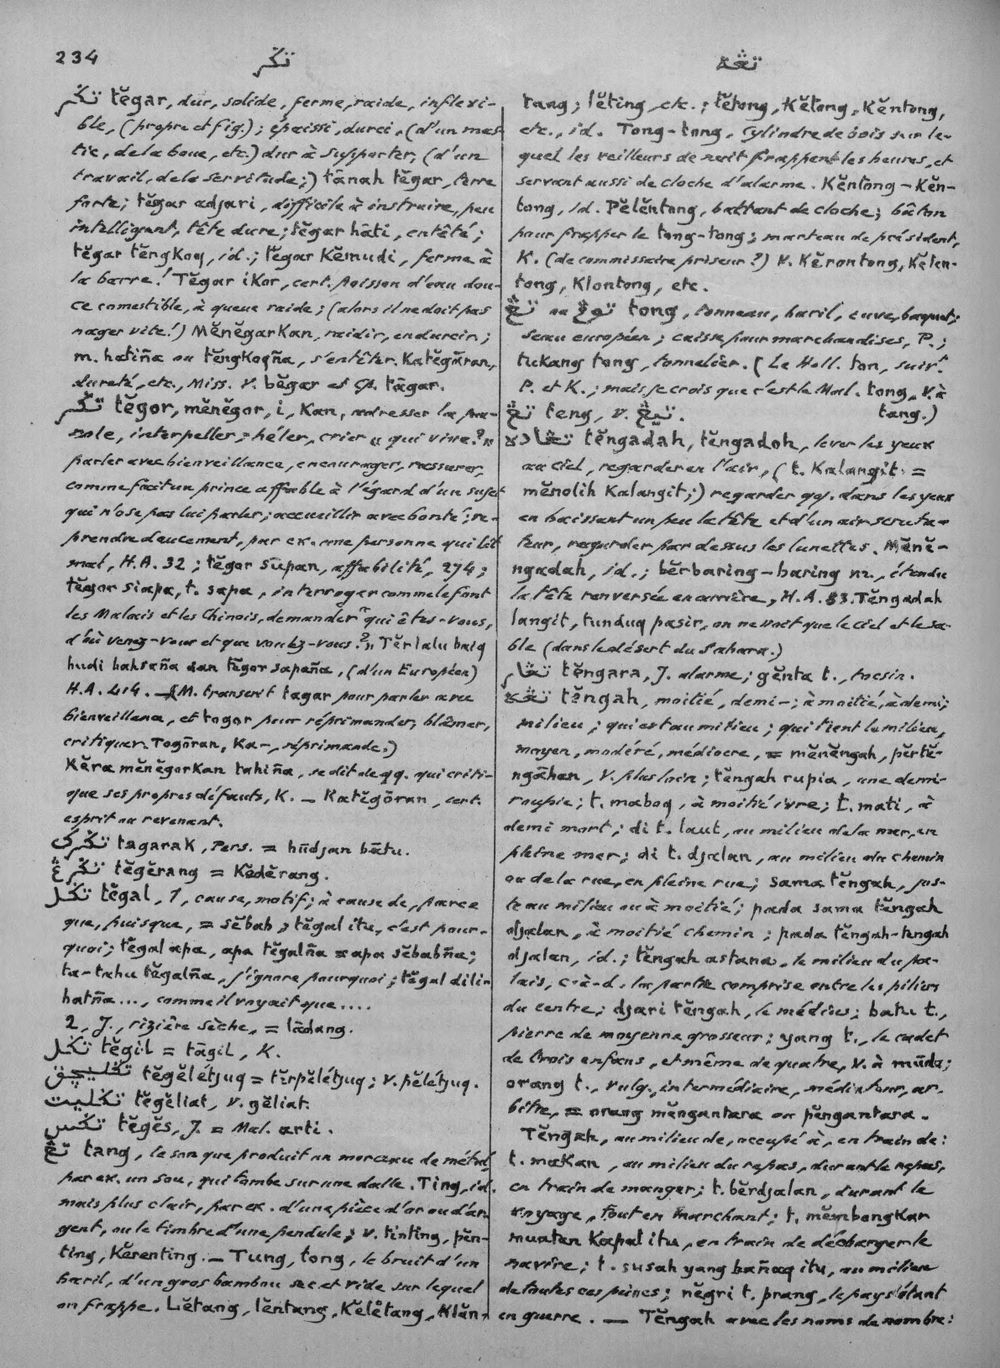 234
تڬر
تڠه
تڬر tĕgar, dur, solide, ferme, raide, inflexi-
ble, (propre et fig.); épaissi, durci, (d'un mas-
tic, de la boue, etc.) dur à supporter, (d'un
travail, de la servitude;) tānah tĕgar, terre
forte; tĕgar adjari, difficile à instruire, peu
intelligent, tête dure; tĕgar hāti, entêté;
tĕgar tĕngkoq, id.; tĕgar Kĕmudi, ferme à
la barre! Tĕgar iKor, cert. poisson d'eau dou-
ce comestible, à queue raide; (alors il ne doit pas
nager vite!) MĕnĕgarKan, raidir, endurcir;
m. hatiña ou tĕngkoqña, s'entêter. Katĕgāran,
dureté, etc., Miss. V. bĕgar et Cp. tāgar.
تڬر tĕgor, mĕnĕgor, i, Kan, adresser la pa-
role, interpeller, = héler, crier „ qui vive? „
parler avec bienveillance, encourager, rassurer,
comme fait un prince affable à l'égard d'un sujet
qui n'ose pas lui parler; accueillir avec bonté; re-
prendre doucement, par ex. une personne qui lit
mal, H.A. 32; tĕgor sūpan, affabilité, 274;
tĕgor siapa, t. sapa, interroger comme le font
les Malais et les Chinois, demander "qui êtes-vous,
d'où venez-vous et que voulez-vous? „ Tĕrlalu baiq
budi bahsaña dan tĕgor sapaña, (d'un Européen)
H.A. 414. — M. transcrit tagar pour parler avec
bienveillance, et togor pour réprimander, blâmer,
critiquer. Togōran, Ka-, réprimande.)
Kĕra mĕnĕgorKan tahiña, se dit de qq. qui criti-
que ses propres défauts, K. — Katĕgōran, cert.
esprit ou revenant.
تڬرق tagarak, Pers. = hūdjan bātu.
تڬرڠ tĕgĕrang = Kĕdĕrang.
تڬل tĕgal, 1, cause, motif; à cause de, parce
que, puisque, = sĕbab; tĕgal itu, c'est pour-
quoi; tĕgal apa, apa tĕgalña = apa sĕbabña;
ta-tahu tĕgalña, j'ignore pourquoi; tĕgal dili-
hatña..., comme il voyait que....
2, J., rizière sèche, = lādang.
تڬل tĕgil = tāgil, K.
تڬليچق tĕgĕlétjuq = tĕrpĕlétjuq; v. pĕlétjuq.
تڬليت tĕgĕliat, v. gĕliat.
تڬس tĕgĕs, J. = Mal. arti.
تڠ tang, le son que produit un morceau de métal,
par ex. un sou, qui tombe sur une dalle. Ting, id.
mais plus clair, par ex. d'une pièce d'or ou d'ar-
gent, ou le timbre d'une pendule; v. tinting, pĕn-
ting, Kĕsenting. — Tung, tong, le bruit d'un
baril, d'un gros bambou sec et vide sur lequel
on frappe. Lĕtang, lĕntang, Kĕlĕtang, Klĕn-
tang; lĕting, etc.; tĕtong, Kĕtong, Kĕntong,
etc., id. Tong-tong, cylindre de bois sur le-
quel les veilleurs de nuit frappent les heures, et
servant aussi de cloche d'alarme. Kĕntong-Kĕn-
tong, id. Pĕlĕntong, battant de cloche; bâton
pour frapper le tong-tong; marteau de président,
K. (de commissaire priseur?) V. Kĕrontong, Kĕlen-
tong, Klontong, etc.
تڠ ou توڠ tong, tonneau, baril, cuve, baquet;
seau européen; caisse pour marchandises, P.;
tukang tong, tonnelier. (Le Holl. ton, suivt.
P. et K.; mais je crois que c'est le Mal. tong, v. à
tang.)
تڠ teng, v. تيڠ.
تڠادہ tĕngadah, tĕngadoh, lever les yeux
au ciel, regarder en l'air, (t. Kalangit =
mĕnolih Kalangit;) regarder qq. dans les yeux
en baissant un peu la tête et d'un air scruta-
teur, regarder par dessus les lunettes. Mĕnĕ-
ngadah, id.; bĕrbaring-baring m., étendu
la tête renversée en arrière, H.A. 83. Tĕngadah
langit, tunduq pasir, on ne voit que le ciel et le sa-
ble (dans le désert du Sahara.)
تڠار tĕngara, J. alarme; gĕnta t., tocsin.
تڠه tĕngah, moitié, demi-; à moitié, à demi;
milieu; qui est au milieu; qui tient le milieu,
moyen, modéré, médiocre, = mĕnĕngah, pĕrtĕ-
ngāhan, V. plus loin; tĕngah rupia, une demi-
roupie; t. maboq, à moitié ivre; t. mati, à
demi mort; di t. laut, au milieu de la mer, en
pleine mer; di t. djalan, au milieu du chemin
ou de la rue, en pleine rue; sama tĕngah, jus-
te au milieu ou à moitié; pada sama tĕngah
djalan, à moitié chemin; pada tĕngah-tngah
djalan, id.; tĕngah astana, le milieu du pa-
lais, c-à-d. la partie comprise entre les piliers
du centre; djari tĕngah, le médius; batu t.,
pierre de moyenne grosseur; yang t., le cadet
de trois enfans, et même de quatre, v. à mūda;
orang t., vulg. intermédiaire, médiateur, ar-
bitre, = orang mĕngantara ou pĕngantara.
Tĕngah, au milieu de, occupé à, en train de:
t. maKan, au milieu du repas, durant le repas,
en train de manger; t. bĕrdjalan, durant le
voyage, tout en marchant; t. mĕmbongKar
muatan Kapal itu, en train de décharger le
navire; t. susah yang bañaq itu, au milieu
de toutes ces peines; nĕgri t. prang, le pays étant
en guerre. — Tĕngah avec les noms de nombre: